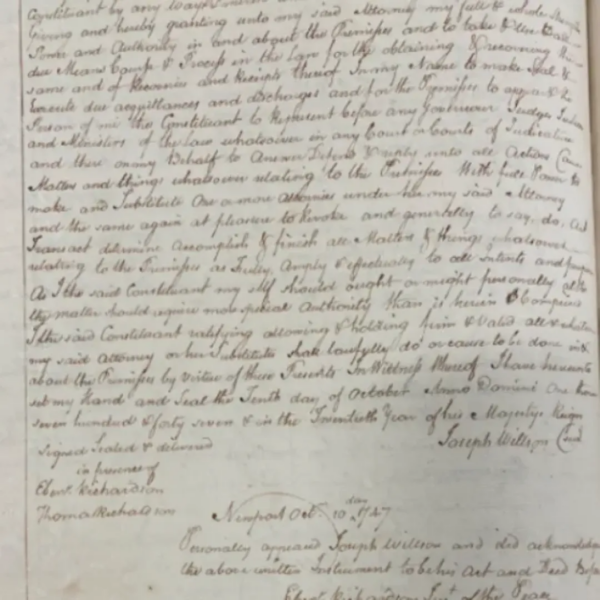 Constituent by any Ways
Giving and hereby granting unto my said Attorney my full & whole
Power and Authority in and about the Premises and to take & Use all
due Means Course & Process in the Law for the obtaining & recovering the
same and of Recoveries and Receipts thereof In my Name to make Seal &
Execute due acquittances and discharges and for the Premises to appear & the
Person of me the Constituent to Represent before any Governour Judges
and Ministers of the Law whatsoever in any Court or Courts of Judicature
and there on my Behalf to Answer Defend & reply unto all Actions
Matters and things whatsoever relating to the Premises With full Power to
make and Substitute One or more Attornies under her my said Attorney
and the same again at pleasure to Revoke and generally to say, do, Act
Transact determine Accomplish & finish all Matters & things whatsoever
relating to the Premises as fully Amply & effectually to all Intents and
As I the said Constituent my self should ought or might personally
the matter should require more special Authority than is herein Comprised
I the said Constituent ratifying allowing & holding firm & Valid all &
my said Attorney or her Substitute shall lawfully do or cause to be done in &
about the Premises by Virtue of these Presents In Witness thereof I have hereunto
set my Hand and Seal the Tenth day of October Anno Domini One thou
seven hundred & forty seven & in the Twentieth Year of his Majestys Reign
Signed Sealed & delivered Joseph Willson
in presence of
Ebenr. Richardson
Thomas Richardson Newport Octr. 10 day 1747
Personally appeared Joseph Willson and did acknowledge
the above written Instrument to be his Act and Deed Before
Ebenr Richardson Just. of the Peace